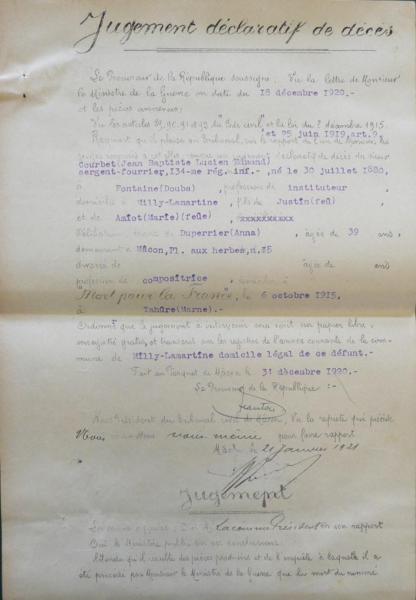 Jugement déclaratif de décès
Le Procureur de la République soussigné. Vu la lettre de Monsieur
le Ministre de la Guerre en date du 18 décembre 1920.-
et les pièces annexées;
Vu les articles 89, 90, 91 et 93 du Code civil et la loi du 3 décembre 1915.
et 25 juin 1919, art.9,
Requiert qu'il plaise au tribunal, sur le rapport de l'un de Messieurs les
déclaratif de décès du sieur
Courbet (Jean Baptiste Lucien Edmond)
sergent-fourrier, 134-me rég. inf.- , né le 30 juillet 1880,
à Fontaine (Doubs) , profession de instituteur
domicilié à Milly-Lamartine , fils de Justin (feu)
et de Amiot (Marie) (feue) , xxxxxxxxxx
Célibataire, époux de Duperrier (Anna) , âgée de 39 ans
demeurant à Mâcon, Pl. aux herbes, n.25
divorcé de âgée de ans
profession de compositrice
"Mort pour la France", le 6 octobre 1915,
à Tahure (Marne).-
Ordonner que le jugement à intervenir sera écrit sur papier libre,
enregistré gratis, et transcrit sur les registres de l'année courante de la com-
mune de Milly-Lamartine domicile légal de ce défunt.-
Fait au Parquet de Mâcon le 31 décembre 1920.-
Le Procureur de la République :-
Nous Président du tribunal civil de Mâcon, Vu la requête qui précède
Nous nous même pour faire rapport
Mâcon, le 21 Janvier 1921
Jugement
Lacomme Président en son rapport
Ouï le Ministère public en ses conclusions
Attendu qu'il résulte des pièces produites et de l'enquête à laquelle il a
été procédé par Monsieur le Ministre de la Guerre que la mort du nommé